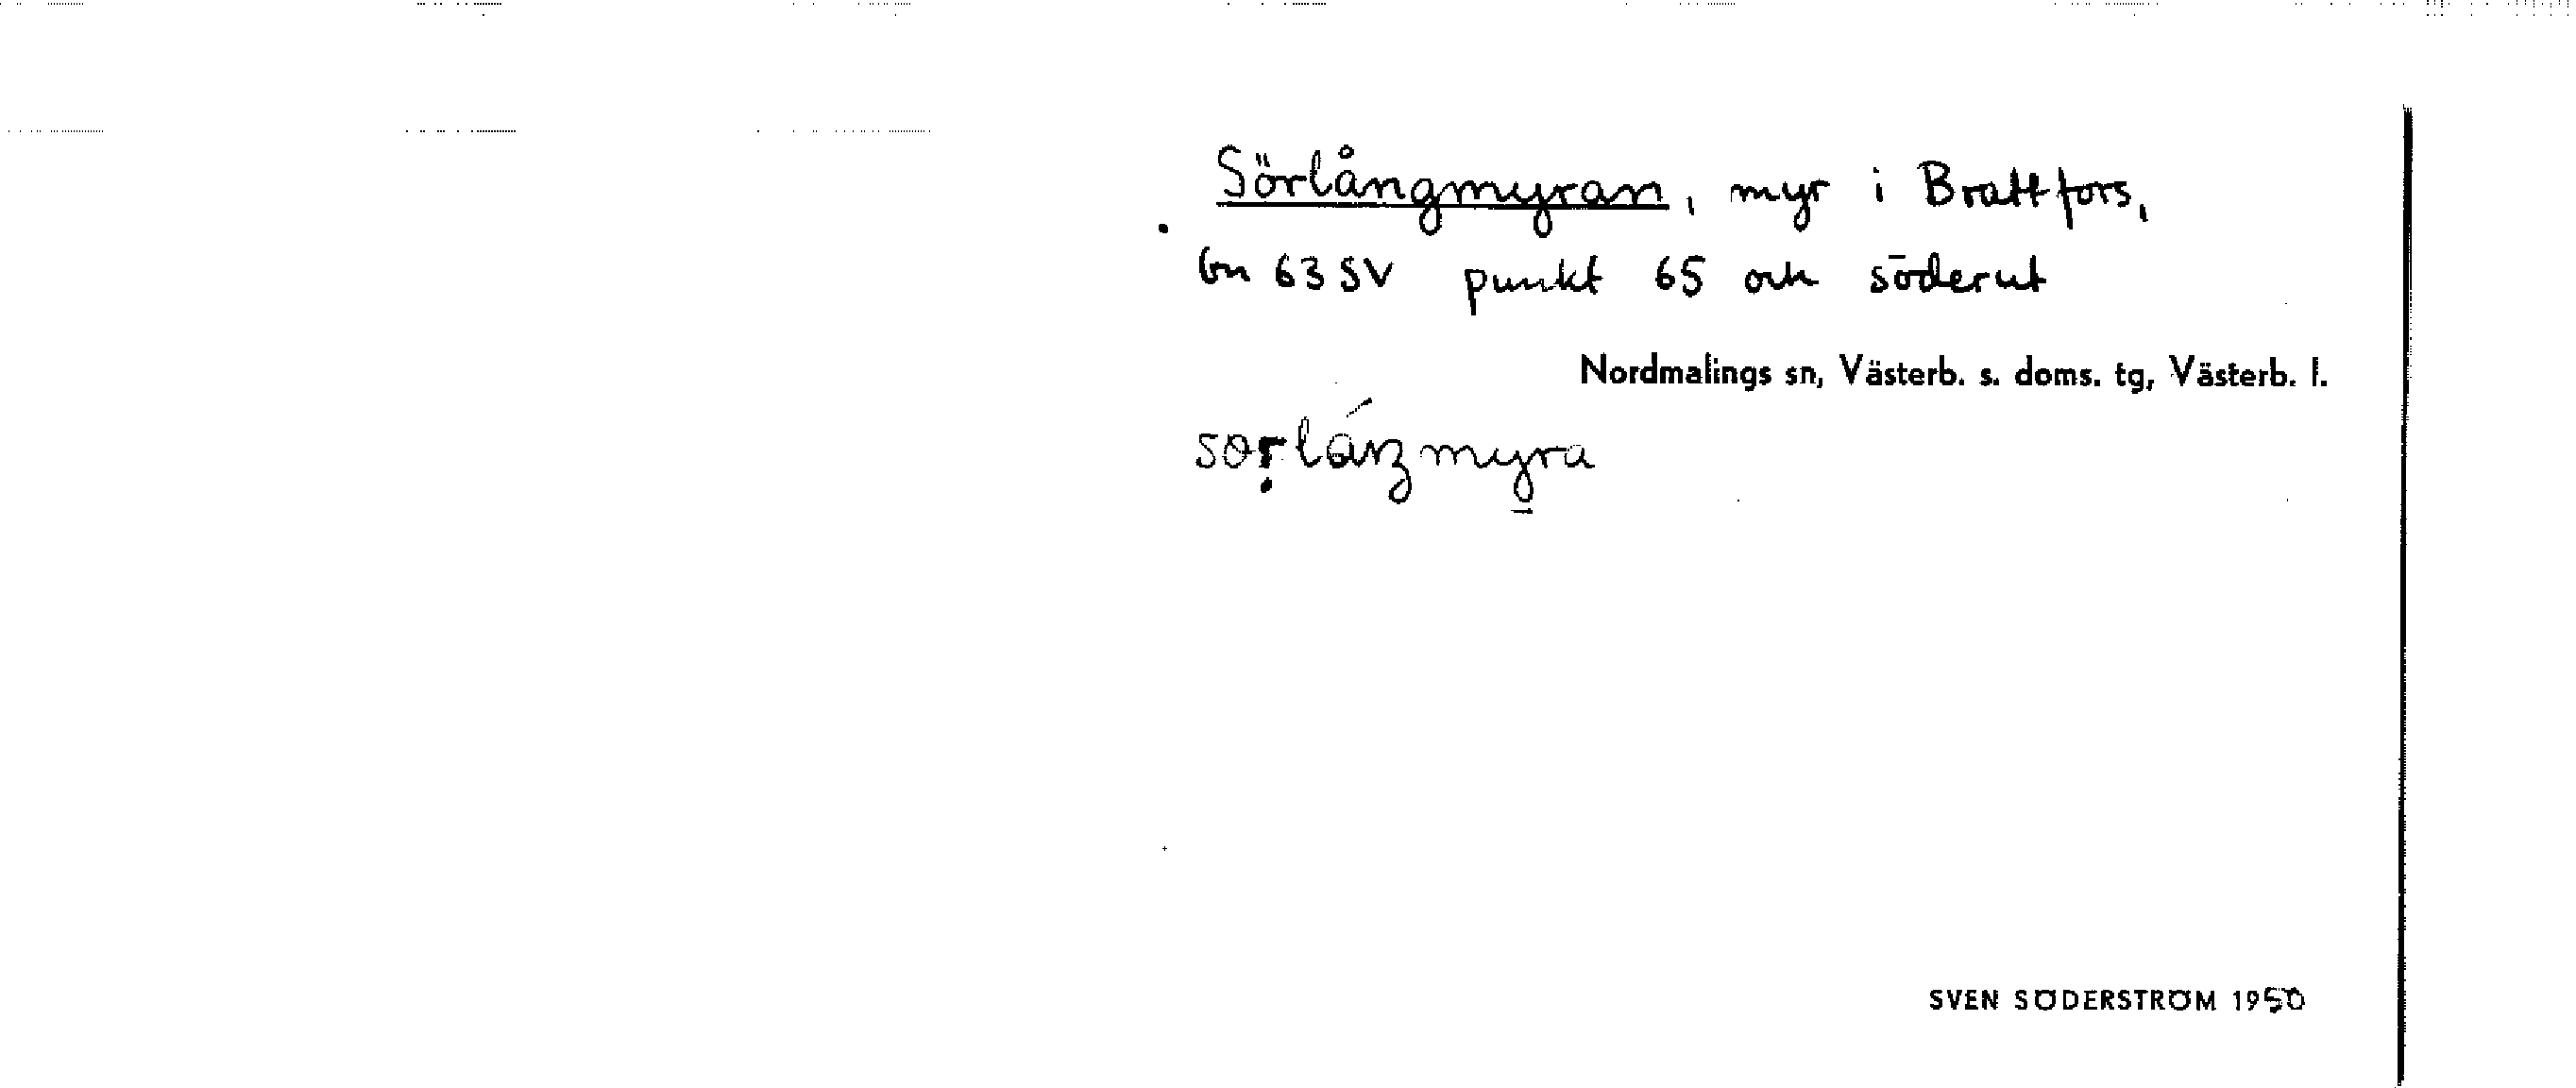 Sörlångmyran, myr i Brattfors,
bn 63 SV punkt 65 och söderut
Nordmalings sn, Västerb. s. doms. tg, Västerb. l.
SVEN SÖDERSTRÖM 1950